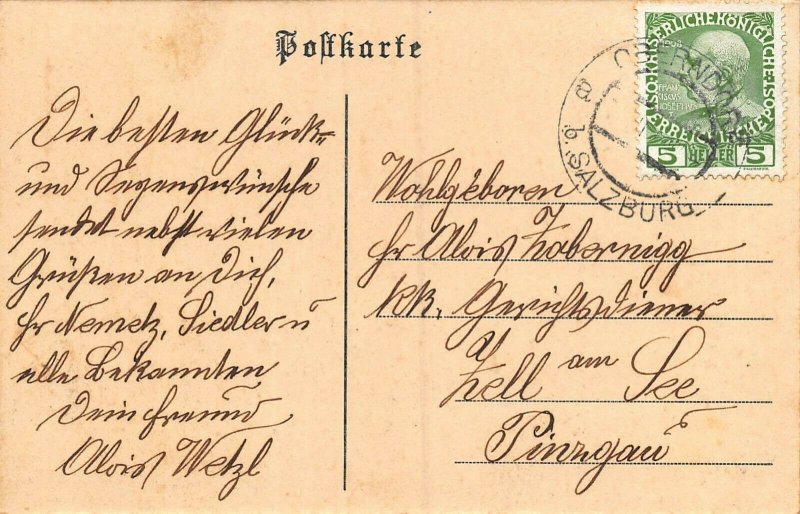 Postkarte
Die besten Glück-
und Segenswünsche
sendet nebst vielen
Grüßen an Dich,
Hr Nemetz, Siedler u
alle Bekannten
Dein Freund
Alois Wetzl
Wohlgeboren
Hr Alois Zabernigg
KK. Gerichtsdiener
Zell am See
Pinzgau
OBERNDORF
a
b. SALZBURG
KAISERLICHE KÖNIGLICHE
ÖSTERREICHISCHE POST
1908
FRAN
CISCUS
JOSEPHUS
5 HELLER 5